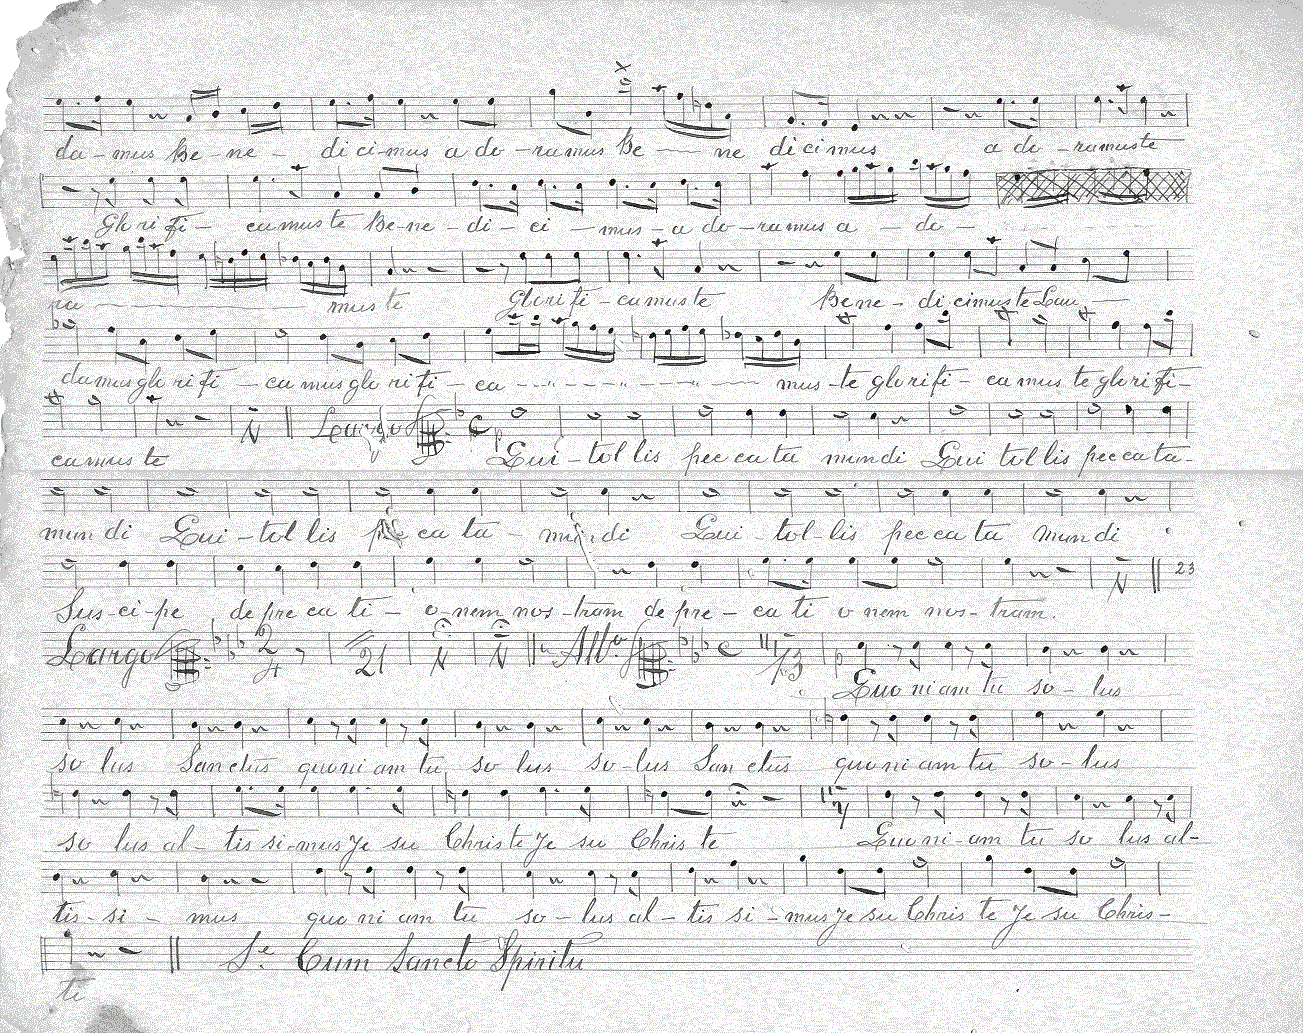 da-mus Be-ne- di ci-mus a do-ramus Be- ne di cimus a do-ramuste
Glorifi- camuste Be-ne-di-ci-mus-a do-ramus a-do-
ra muste Glorifi-camuste Bene-di cimuste Lau-
damus glo rifi-camus glo rifi-ca mus-te glorifi-camus te glorifi-
Largo C p
camuste Qui-tol lis pec ca ta mundi Qui tollis pec ca ta-
mun di Qui-tol lis ca ta-mundi Qui-tol-lis pec ca ta mun di
23
Sus-ci-pe depre ca ti-o-nem nos-tram de pre-ca ti o nem nos-tram.
Largo 2/4 21 Allo C 13 p
Quo ni am tu so-lus
so lus Sanctus quoni am tu so lus so-lus Sanctus quoni am tu so-lus
so lus al-tis si-mus Je su Christe Je su Chris te Quoni-am tu so lus al-
tis-si-mus quo ni am tu so-lus al-tis si-mus Je su Chris te Je su Chris-
Se. Cum Sancto Spiritu
te